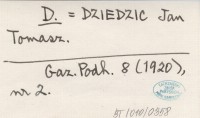 D. = DZIEDZIC Jan
Tomasz.
Gaz. Podh. 8 (1920),
nr 2.
BJ/010/0358